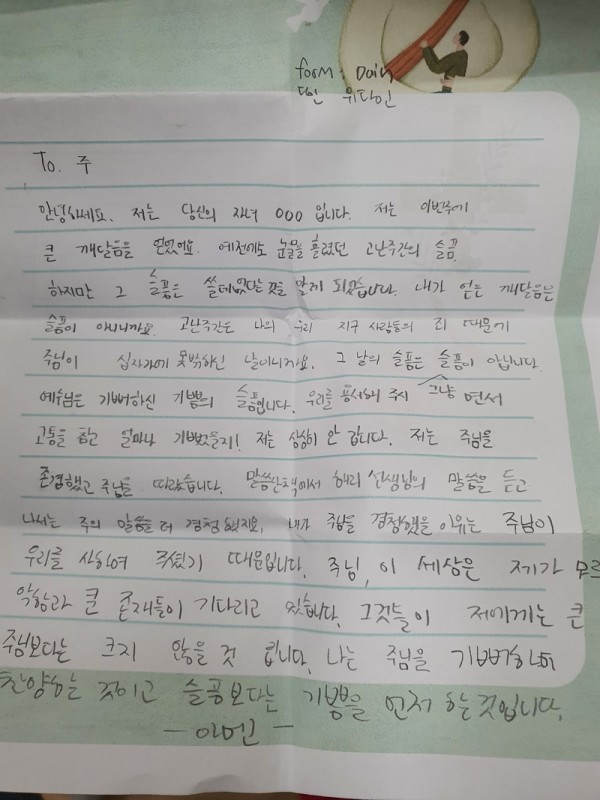 form : Dain
다인 위다인
To. 주
안녕하세요. 저는 당신의 자녀 OOO 입니다. 저는 이번주에
큰 깨달음을 얻었어요. 예전에도 눈물을 흘렸던 고난주간의 슬픔
하지만 그 슬픔은 쓸데없다는 것을 알게 되었습니다. 내가 얻는 깨달음은
슬픔이 아니니까요. 고난주간은 나의 우리 지구 사람들의 죄 때문에
주님이 십자가에 못박하신 날이니까요. 그 날의 슬픔은 슬픔이 아닙니다.
예수님은 기뻐하신 기쁨의 슬픔입니다. 우리를 용서해 주시 그냥 면서
고통을 참고 얼마나 기뻤을지! 저는 상상이 안 갑니다. 저는 주님을
존경했고 주님을 따랐습니다. 말씀산책에서 해리 선생님의 말씀을 듣고
나서는 주의 말씀을 더 경청했지요. 내가 주님을 경청했을 이유는 주님이
우리를 사하여 주셨기 때문입니다. 주님, 이 세상은 제가 모르
악함과 큰 존재들이 기다리고 있습니다. 그것들이 저에게는 큰
주님보다는 크지 않을 것 입니다. 나는 주님을 기뻐하여
찬양하는 것이고 슬픔보다는 기쁨을 먼저 하는 것입니다.
- 아멘 -